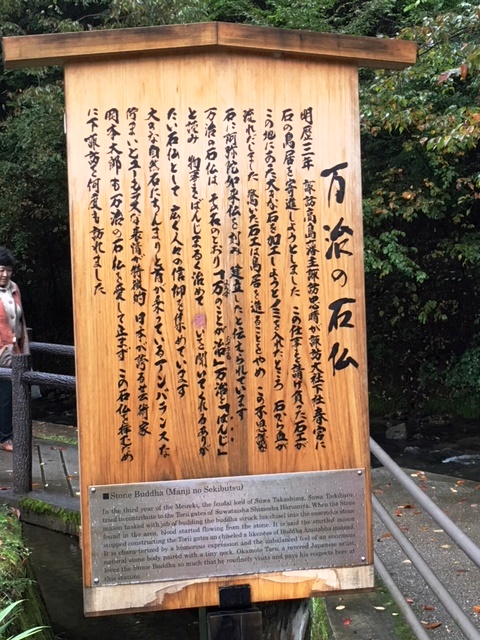 万治の石仏
明暦三年 諏訪高島藩主諏訪忠晴が諏訪大社下社 春宮に
石の鳥居を寄進しようとしました この仕事を請け負った石工が
この地にあった大きな石を加工しようとノミを入れたところ 石から血が
流れだしました 驚いた石工は鳥居を造ることをやめ この不思議な
石に阿弥陀如来仏を刻み 建立したと伝えられています
万治の石仏は その名のとおり「万のことが治」万治と「ばんじ」
と読み 物事をばんじまるく治めて を聞いてくれるありが
たい石仏として 広く人々の信仰を集めています
大きな自然石にちんまりと首が乗っているアンバランスな
佇まいとユーモラスな表情が特徴的 日本が誇る芸術家
岡本太郎も万治の石仏を愛して止まず この石仏を拝むため
に下諏訪を何度も訪れました
■Stone Buddha (Manji no Sekibutsu)
In the third year of the Meireki, the feudal lord of Suwa Takashima, Suwa Tadaharu,
tried to contribute to the Torii gates of Suwataisha Shimosha Harumiya. When the Stone
mason tasked with job of building the buddha struck his chisel into the enormous stone
found in the area, blood started flowing from the stone. It is said the startled mason
stopped constructing the Torii gates an chiseled a likeness of Buddha Amitabha instead.
It is characterized by a humorous expression and the unbalanced feel of an enormous
natural stone body paired with a tiny neck. Okamoto Taro, a revered Japanese artist,
loves the Stone Buddha so much that he routinely visits and pays his respects here at
this statue.